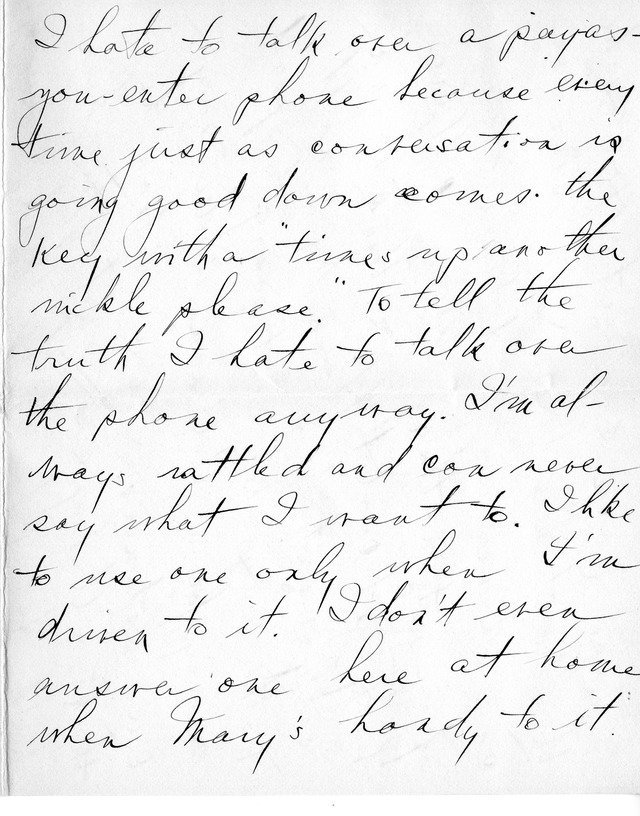 I hate to talk over a payas-
you-enter phone because every
time just as conversation is
going good down comes the
key with a "times up another
nickle please." To tell the
truth I hate to talk over
the phone anyway. I'm al-
ways rattled and can never
say what I want to. I like
to use one only when I'm
driven to it. I don't even
answer one here at home
when Mary's handy to it.